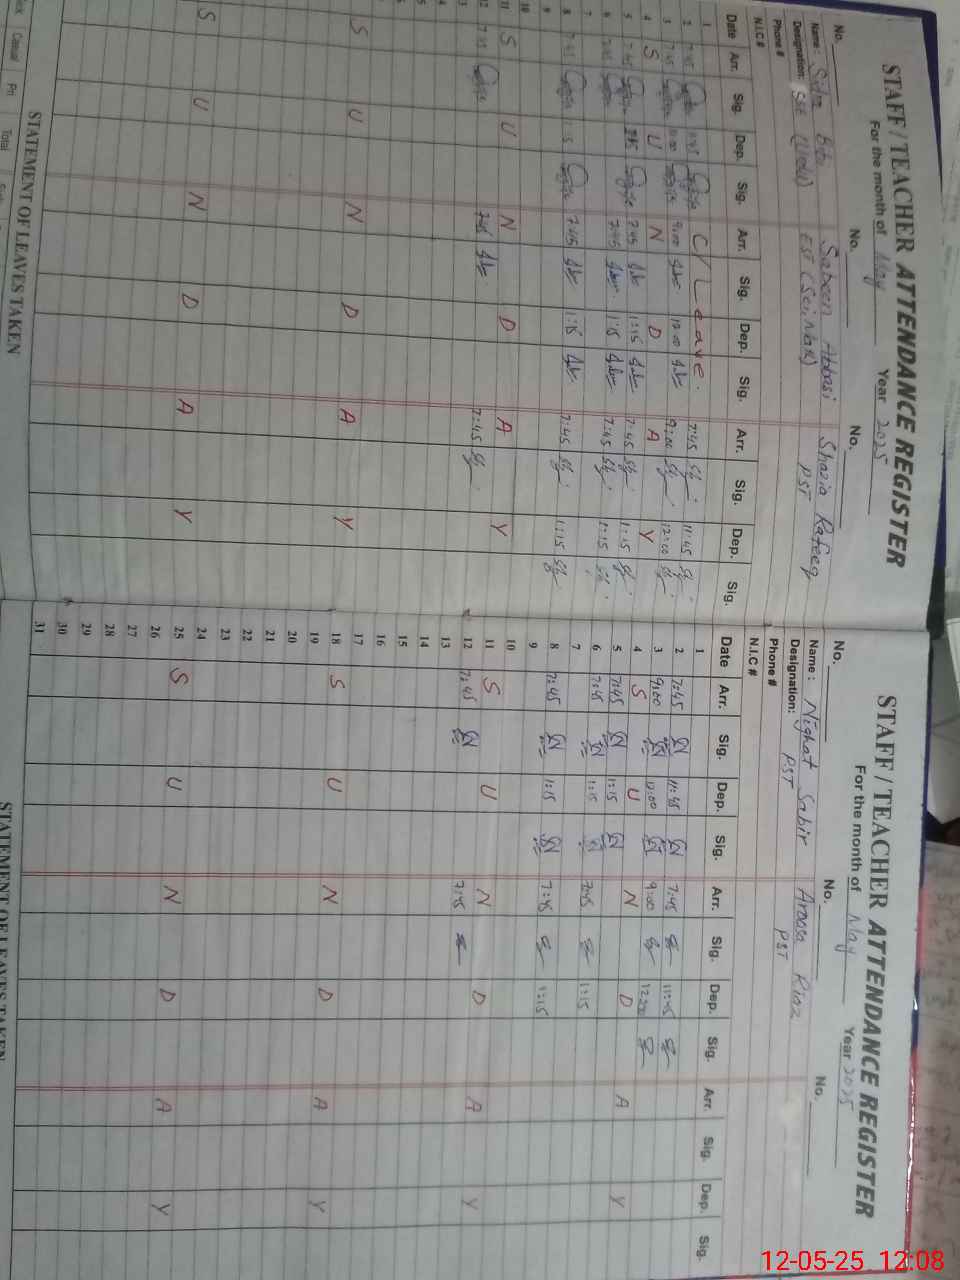 STAFF / TEACHER ATTENDANCE REGISTER
For the month of May Year 2025
No. No. No.
Name : Sidra Bibi Sabeen Abbasi Shazia Rafeeq
Designation: SST EST (Sci.Math) PST
Phone #
N.I.C #
Date Arr. Sig. Dep. Sig. Arr. Sig. Dep. Sig. Arr. Sig. Dep. Sig.
1
2 7:45 C/Leave. 7:45 11:45
3 9:00 12:00 9:00 12:00
4 S U N D A Y
5 7:45 7:45 1:15 7:45 1:15
6 7:45 7:45 1:15 7:45 1:15
7
8 7:45 1:15 7:45 1:15 7:45 1:15
9
10
11 S U N D A Y
12 7:45 7:45 7:45
S U N D A Y
S U N D A Y
STATEMENT OF LEAVES TAKEN
Casual Total
STAFF / TEACHER ATTENDANCE REGISTER
For the month of May Year 2025
No. No. No.
Name : Nighat Sabir Aroosa Riaz
Designation: PST PST
Phone #
N.I.C #
Date Arr. Sig. Dep. Sig. Arr. Sig. Dep. Sig. Arr. Sig. Dep. Sig.
1
2 7:45 11:45 7:45 11:45
3 9:00 12:00 9:00 12:00
4 S U N D A Y
5 7:45 1:15
6 7:45 1:15 7:45 1:15
7
8 7:45 1:15 7:45 1:15
9
10
11 S U N D A Y
12 7:45 7:45
13
14
15
16
17
18 S U N D A Y
19
20
21
22
23
24
25 S U N D A Y
26
27
28
29
30
31
STATEMENT OF LEAVES TAKEN
12-05-25 12:08